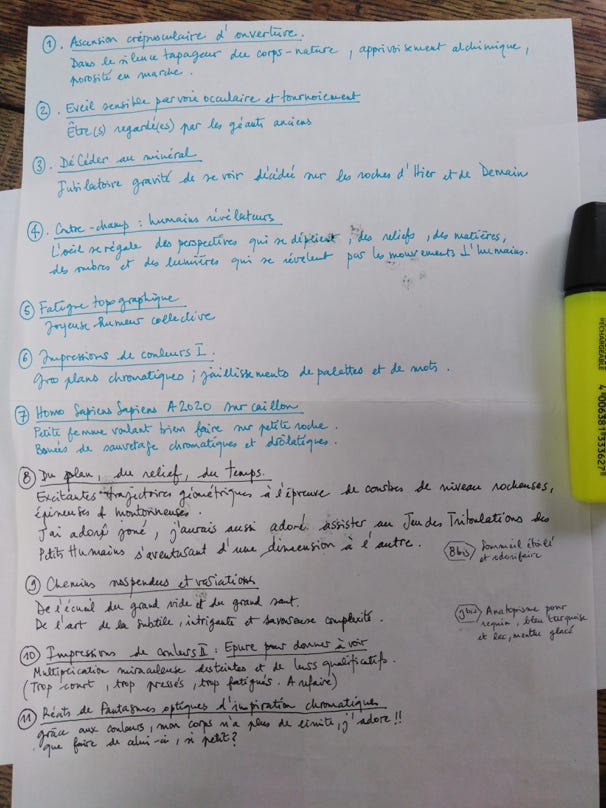 ① . Ascension crépusculaire d'ouverture.
Dans le silence tapageur du corps-nature, apprivoisement alchimique,
porosité en marche.
② . Eveil sensible par voie occulaire et tournoiement
Être(s) regardé(es) par les géants anciens
③ . DéCéder au minéral
Jubilatoire gravité de se voir décédée sur les roches d'Hier et de Demain
④ . Contre-champ : humains révélateurs
L'oeil se régale des perspectives qui se déplient, des reliefs, des matières,
des ombres et des lumières qui se révèlent par les mouvements d'humains.
⑤ Fatigue topographique
Joyeuse humeur collective
⑥ Impressions de couleurs I.
Gros plans chromatiques ; jaillissements de palettes et de mots.
⑦ Homo Sapiens Sapiens A2020 sur caillou
Petite femme voulant bien faire sur petite roche.
Bouées de sauvetage chromatiques et drôlatiques.
⑧ Du plan, du relief, du temps.
Excitantes trajectoires géométriques à l'épreuve de courbes de niveau rocheuses,
épineuses & moutonneuses.
J'ai adoré joué, j'aurais aussi adoré assister au Jeu des Tribulations des
Petits Humains s'aventurant d'une dimension à l'autre.
8bis Sommeil étoilé
et odorifaire
⑨ Chemins suspendus et variations
De l'écueil du grand vide et du grand saut.
De l'art de la subtile, intrigante et savoureuse complexité.
9bis Anatopisme pour
requin, bleu turquoise
et lac, menthe glacé
⑩ Impressions de couleurs II : Epure pour donner à voir
Multiplication miraculeuse des teintes et de leurs qualificatifs.
(Trop court, trop pressés, trop fatigués. A refaire)
⑪ Récits de Fantasmes optiques d'inspiration chromatiques
grâce aux couleurs, mon corps n'a plus de limite, j'adore !!
que faire de celui-ci, si petit ?
RECHARGEABLE
4 006381 333627